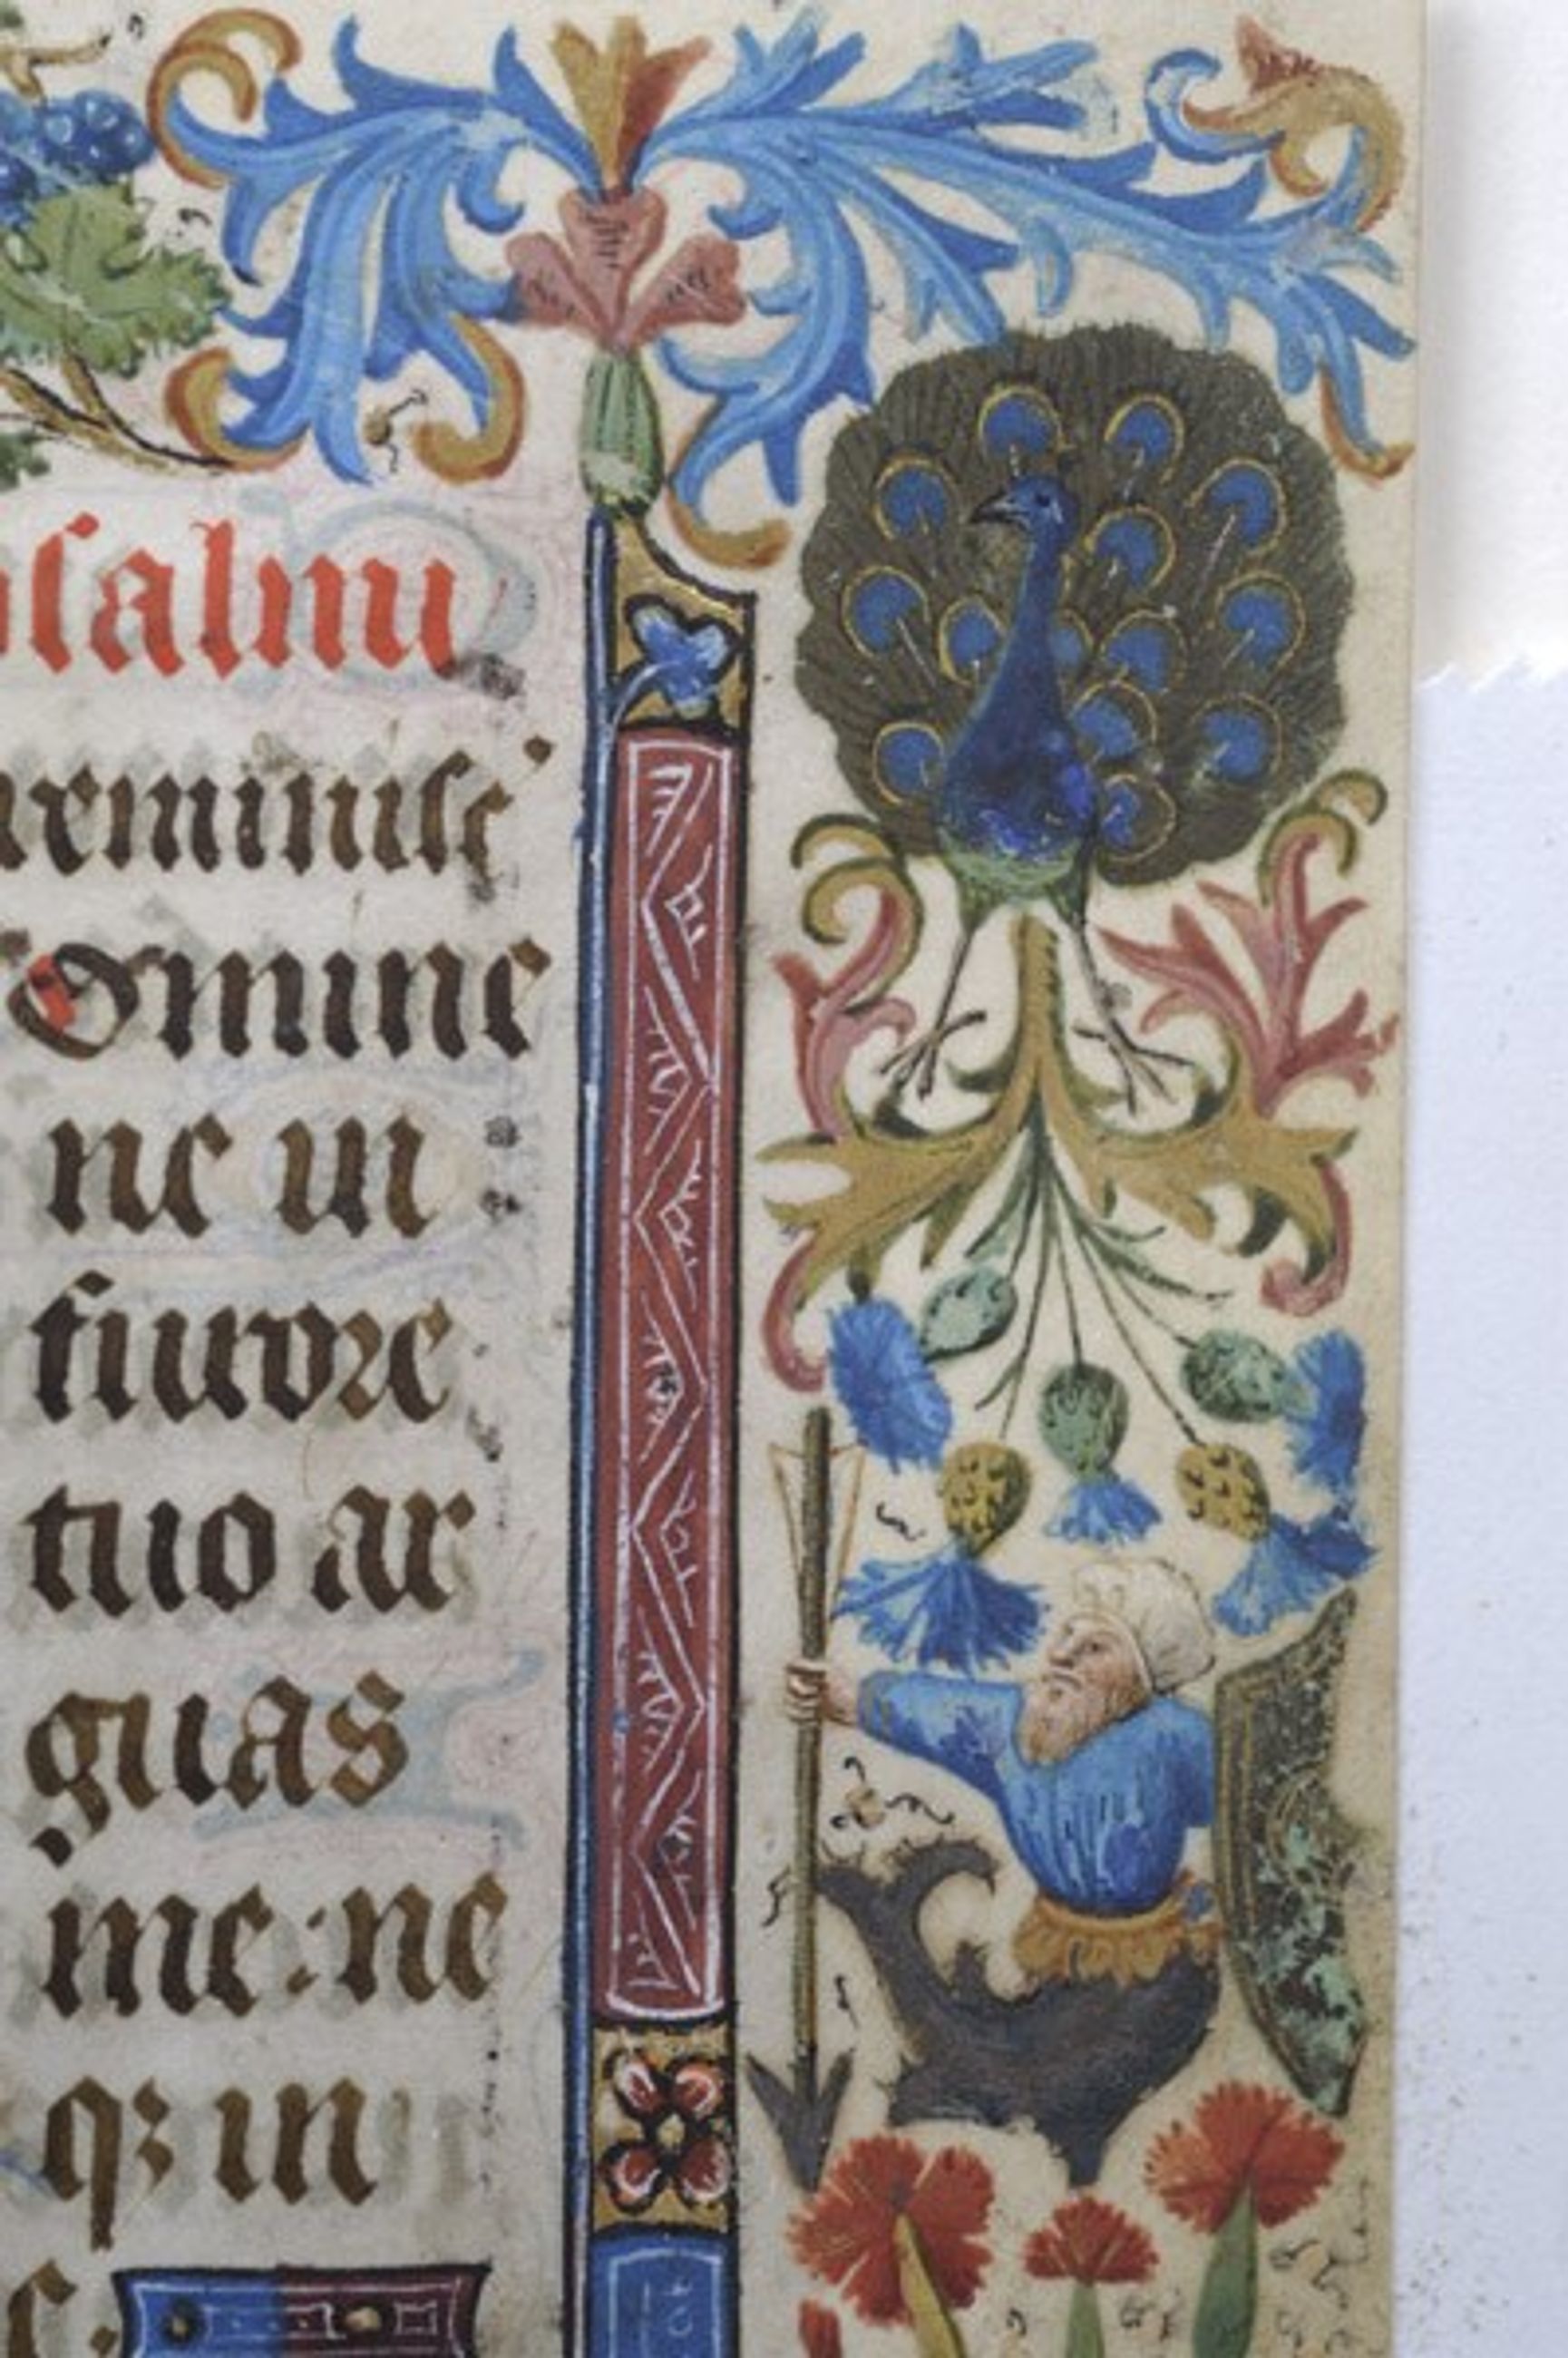 psalm
reminisc'
Domine
ne in
furore
tuo ar
guas
me: ne
qꝫ in